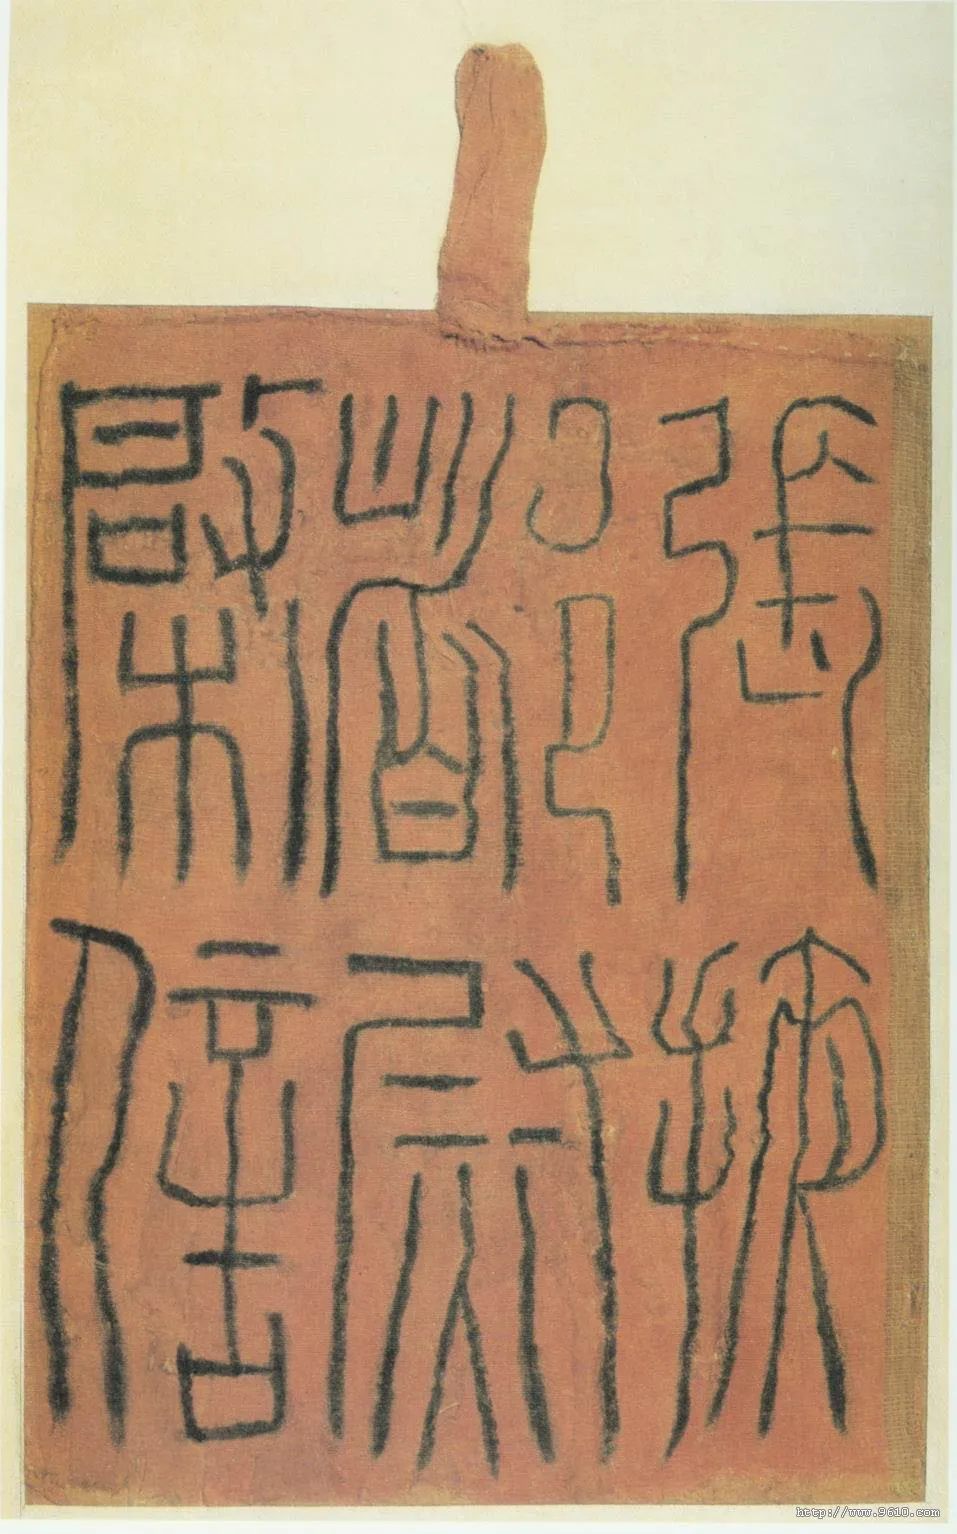 張掖
都尉
棨信
http://www.9610.com